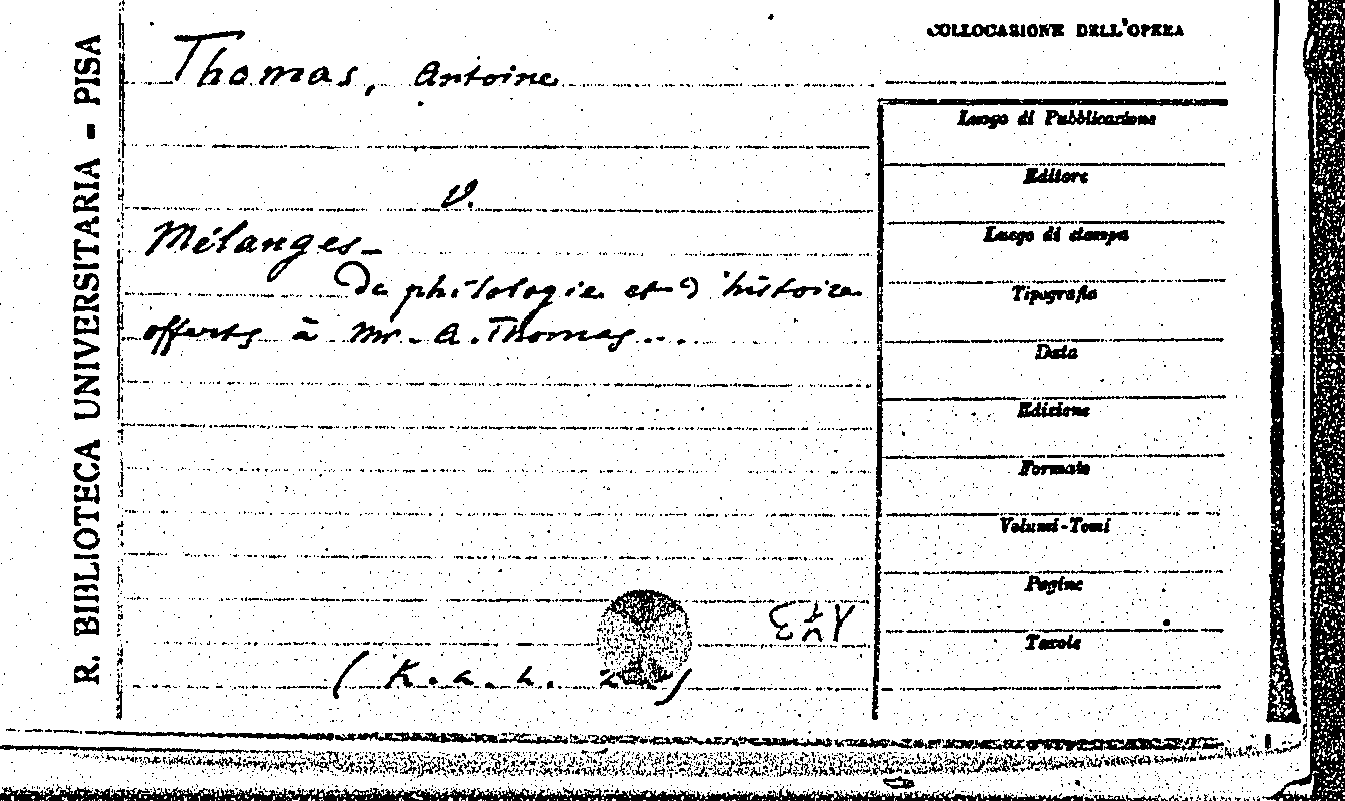 R. BIBLIOTECA UNIVERSITARIA - PISA
Thomas, Antoine
v.
Mélanges-
De philologie et d'histoire
offerts à Mr. A. Thomas...
(K. a. h.
COLLOCAZIONE DELL'OPERA
Luogo di Pubblicazione
Editore
Luogo di stampa
Tipografia
Data
Edizione
Formato
Volumi-Tomi
Pagine
Tavole